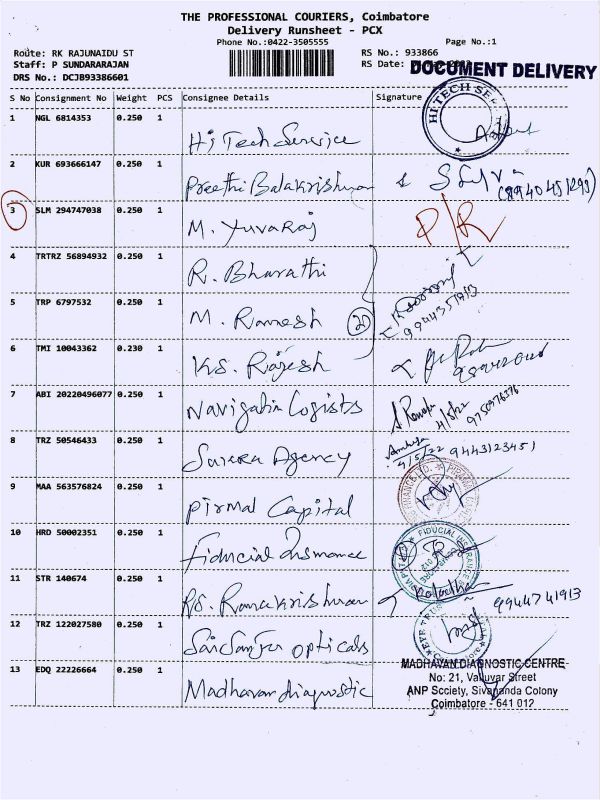 THE PROFESSIONAL COURIERS, Coimbatore
Delivery Runsheet - PCX
Phone No.:0422-3505555 Page No.:1
Route: RK RAJUNAIDU ST RS No.: 933866
Staff: P SUNDARARAJAN RS Date:
DRS No.: DCJB93386601 DOCUMENT DELIVERY
S No Consignment No Weight PCS Consignee Details Signature
1 NGL 6814353 0.250 1 Hi Tech Service HI TECH SE
2 KUR 693666147 0.250 1 Preethi Balakrishnan
3 SLM 294747038 0.250 1 M. Yuvaraj P/R
4 TRTRZ 56894932 0.250 1 R. Bharathi
5 TRP 6797532 0.250 1 M. Ramesh 20 9944351913
6 TMI 10043362 0.230 1 KS. Rajesh
7 ABI 20220496077 0.250 1 Navigatin Logists 4/5/22 9750976376
8 TRZ 50546433 0.250 1 Surera Agency 4/5/22 9443123451
9 MAA 563576824 0.250 1 Pirmal Capital
10 HRD 50002351 0.250 1 Fiducial Insurance FIDUCIAL INSURANCE
11 STR 140674 0.250 1 RS. Ramakrishnan 9944741913
12 TRZ 122027580 0.250 1 Opticals
13 EDQ 22226664 0.250 1 Madhavan diagnostic MADHAVAN DIAGNOSTIC CENTRE
No: 21, Valluvar Street
ANP Society, Sivananda Colony
Coimbatore - 641 012